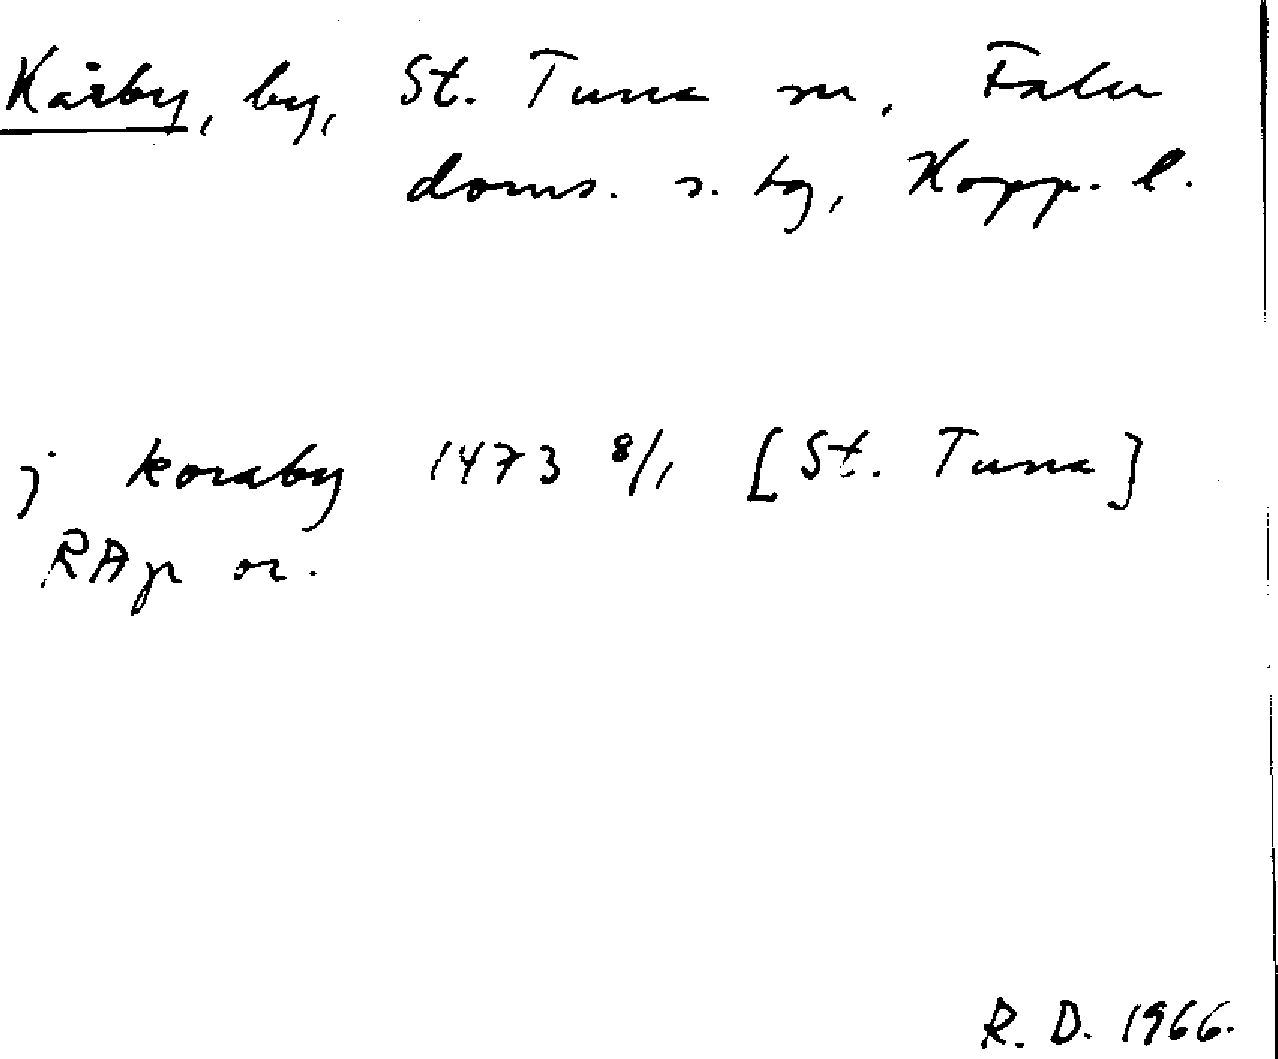 Kårby, by, St. Tuna sn, Falu
doms. s. tg, Kopp. l.
j koraby 1473 8/1 [St. Tuna]
RAp or.
R. D. 1966.